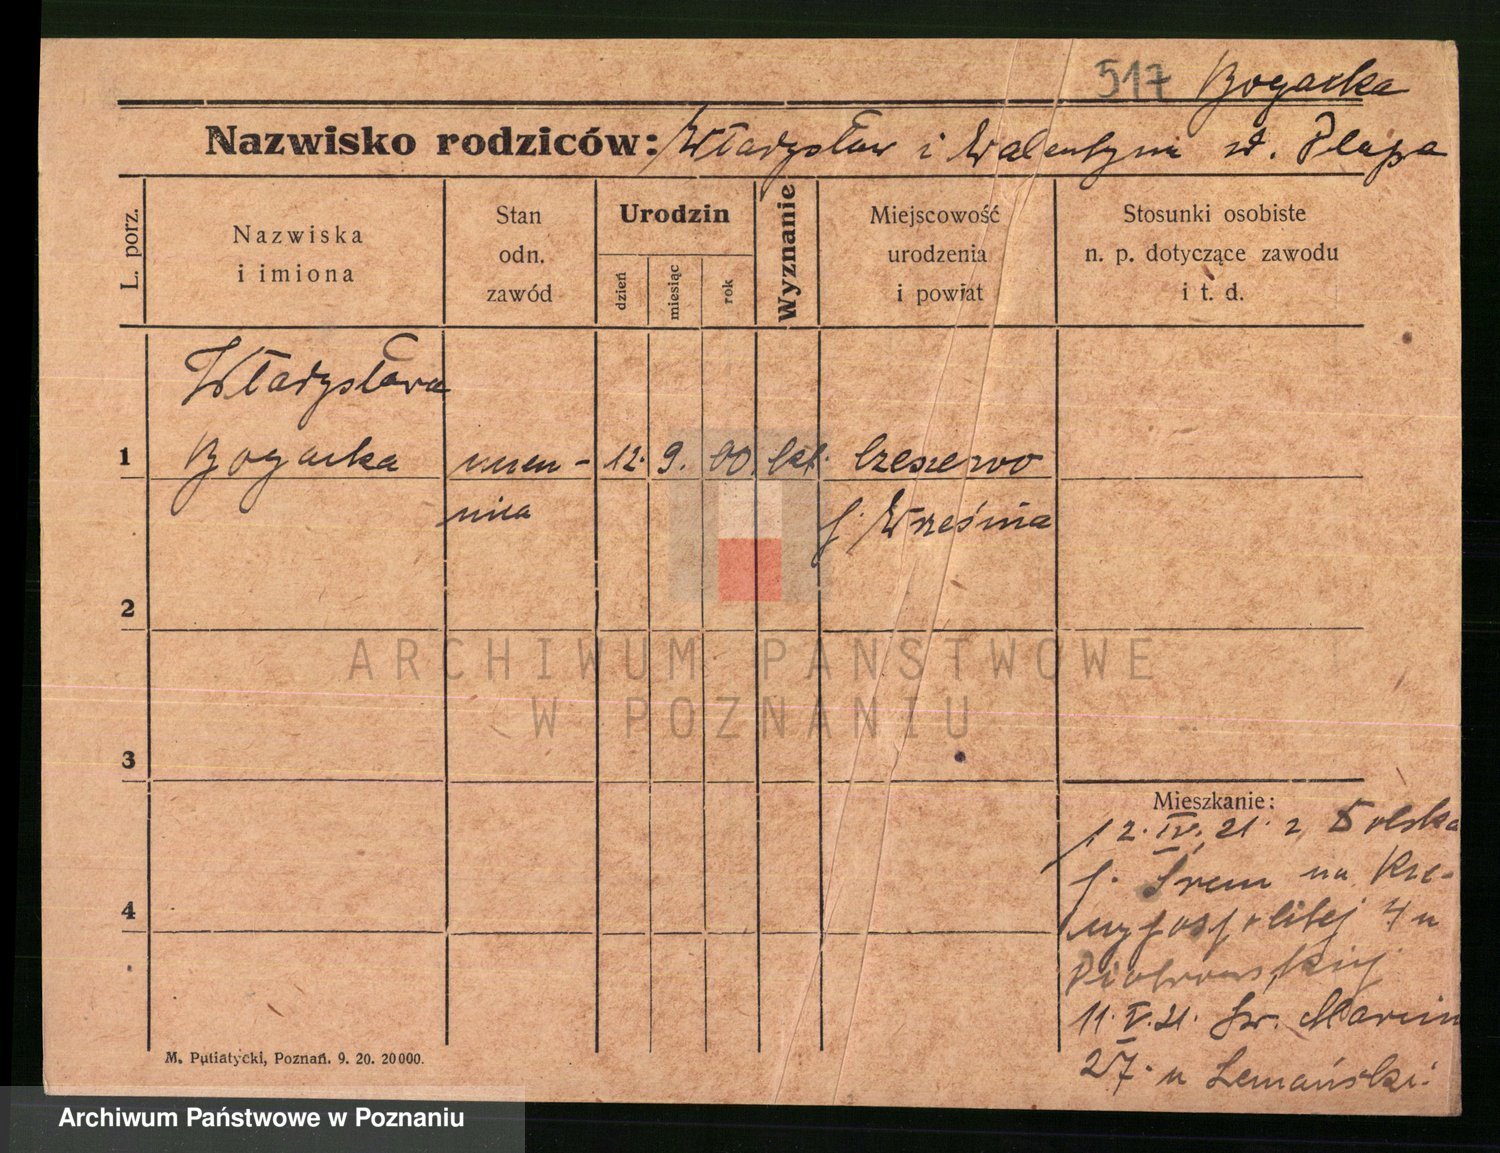 517 Bogacka
Nazwisko rodziców: Władysław i Walentyna d. Plapa
L. porz.
Nazwiska
i imiona
Stan
odn.
zawód
Urodzin
dzień
miesiąc
rok
Wyznanie
Miejscowość
urodzenia
i powiat
Stosunki osobiste
n. p. dotyczące zawodu
i t. d.
Władysława
1 Bogacka uczen- 12. 9. 00. kat. Czeszewo
nica p. Września
2
ARCHIWUM PAŃSTWOWE
W POZNANIU
3
Mieszkanie:
12. IV. 21. z Dolska
p. Śrem na Rze-
czypospolitej 4 u
Piotrowskiej
11. V. 21. Św. Marcin
27. u Lemański
4
M. Putiatycki, Poznań. 9. 20. 20000.
Archiwum Państwowe w Poznaniu